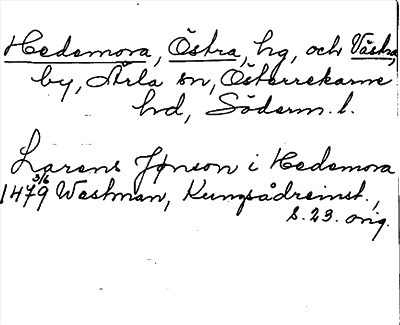 Hedemora, Östra, hg, och Västra,
by, Ärla sn, Österrekarne
hd, Söderm. l.
Larens Jonson i Hedemora
3/6 1479 Westman, Kungsådreinst.,
s. 23. orig.